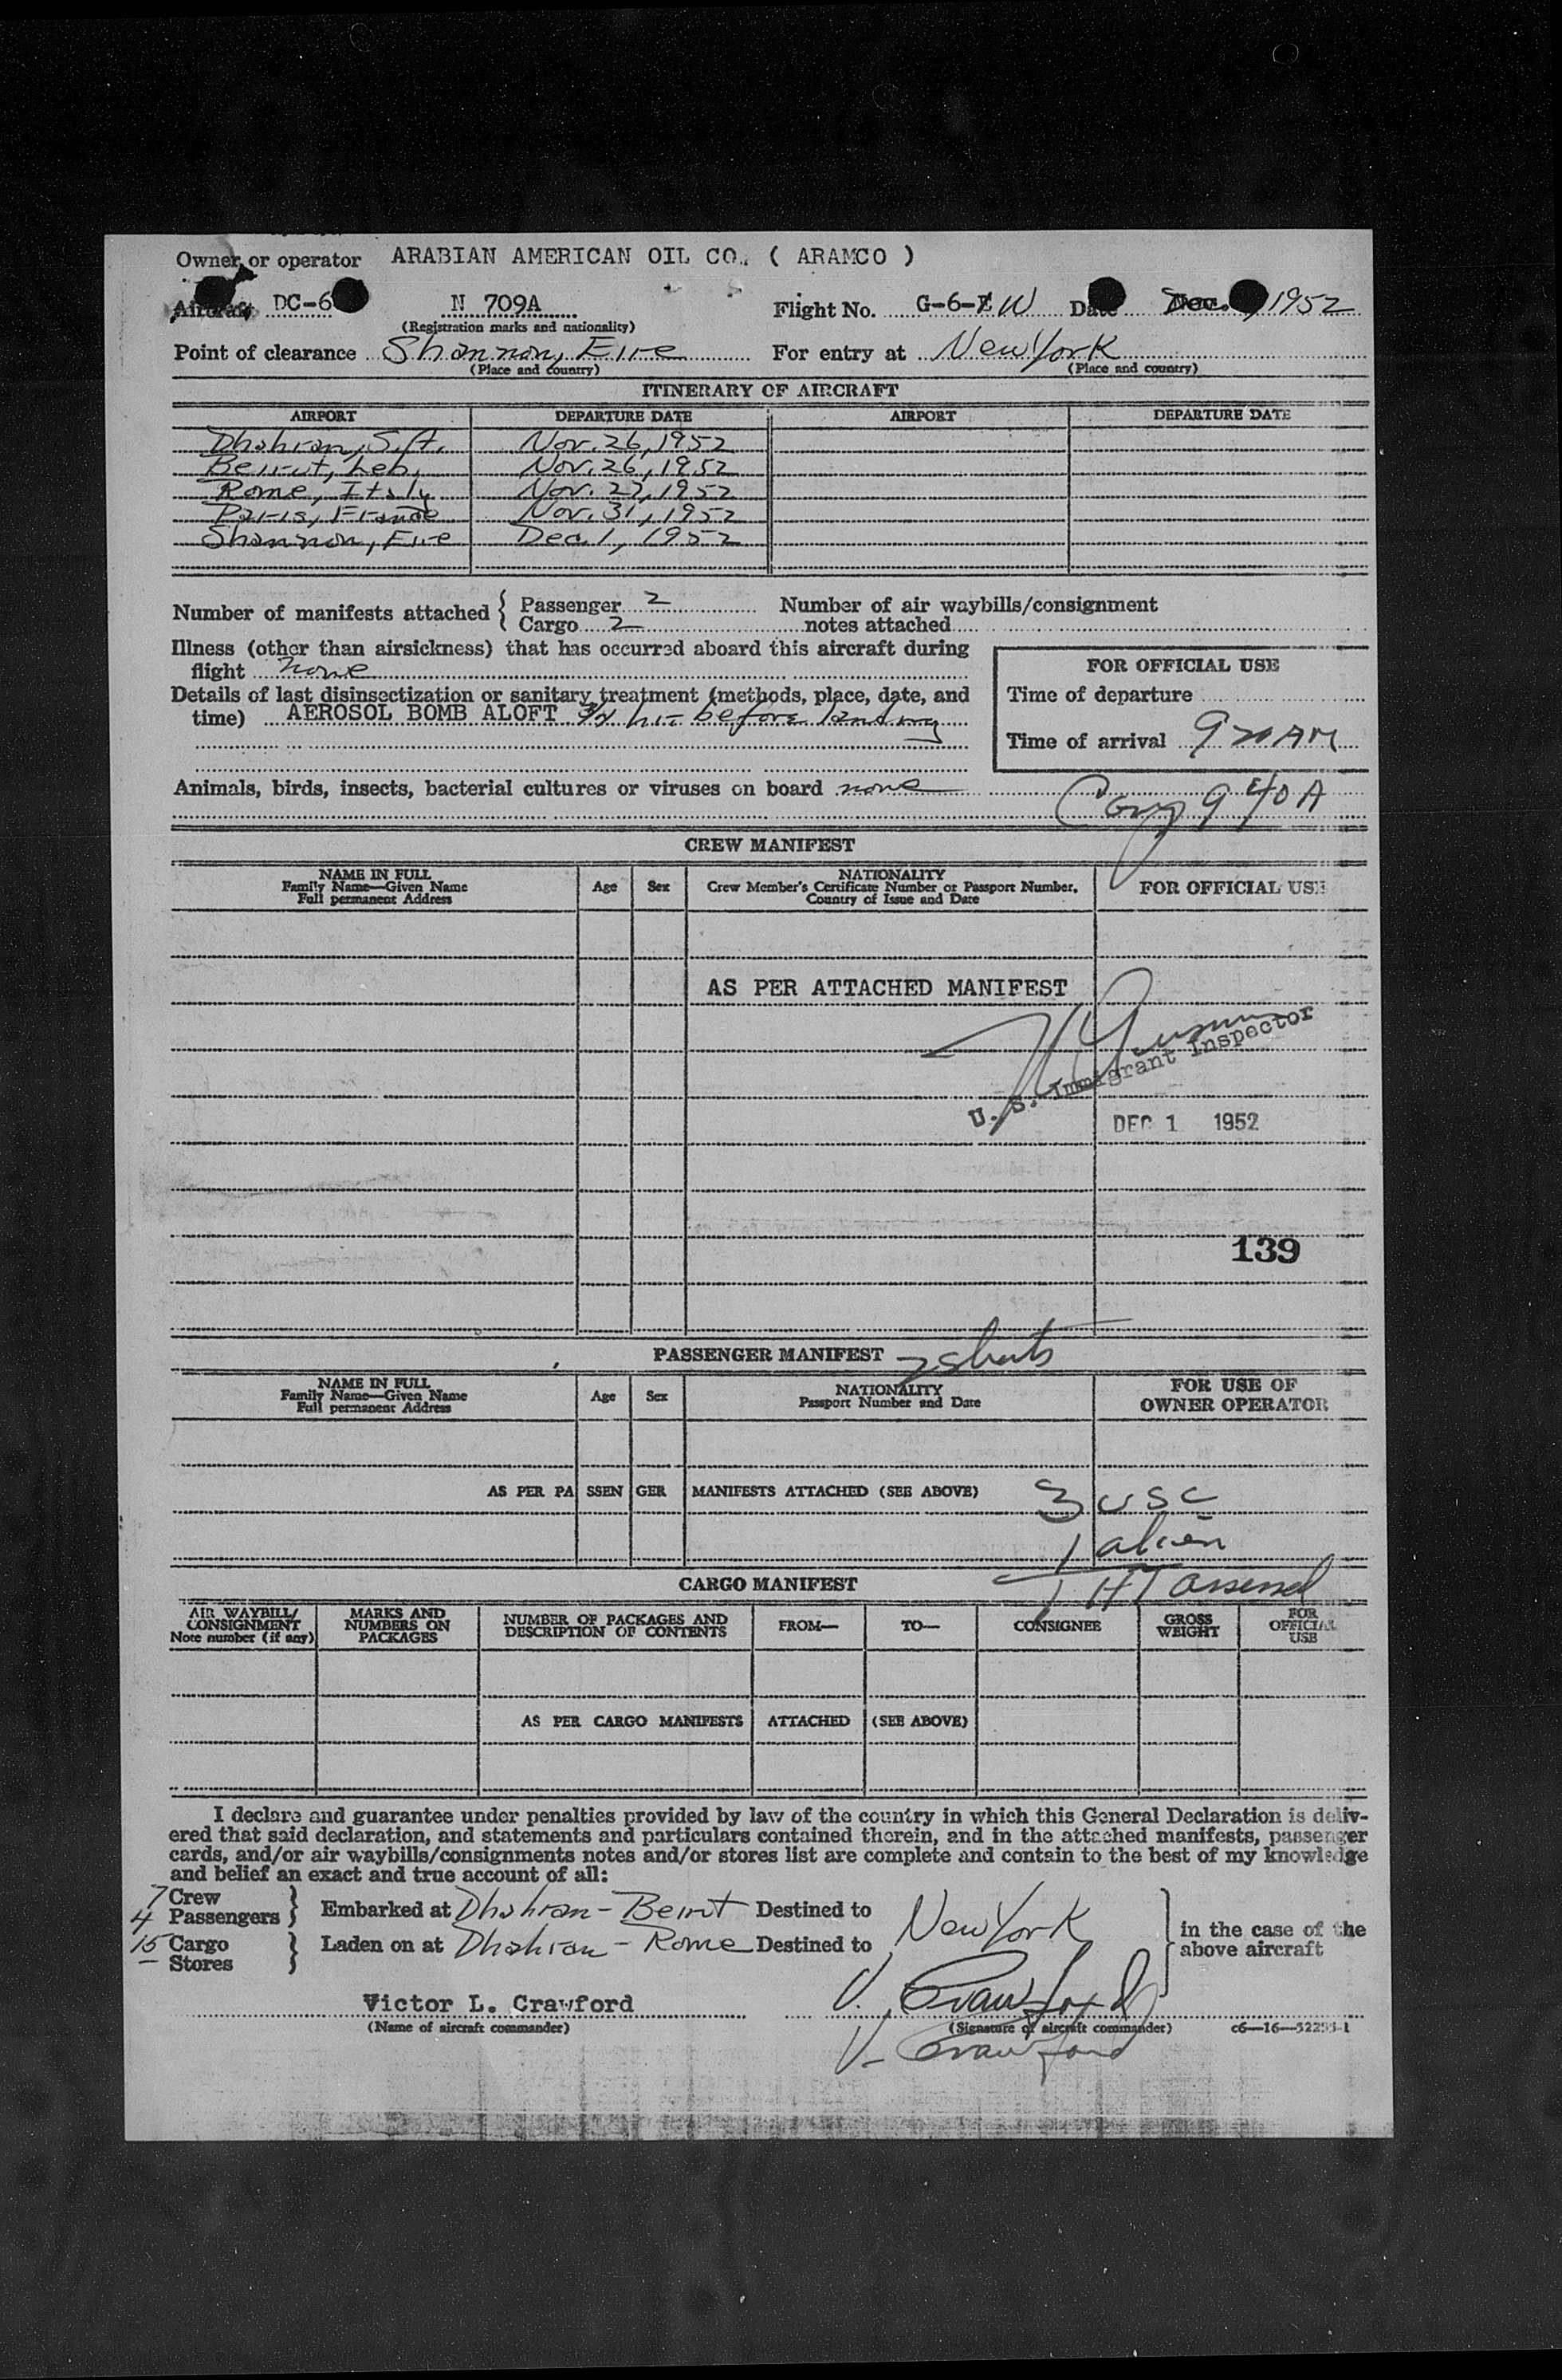 Owner or operator ARABIAN AMERICAN OIL CO. ( ARAMCO )
Aircraft DC-6 N 709A Flight No. G-6- W Date Dec. 1952
(Registration marks and nationality)
Point of clearance Shannon, Eire For entry at New York
(Place and country) (Place and country)
ITINERARY OF AIRCRAFT
AIRPORT DEPARTURE DATE AIRPORT DEPARTURE DATE
Dhahran, S.A. Nov. 26, 1952
Beirut, Leb. Nov. 26, 1952
Rome, Italy Nov. 27, 1952
Paris, France Nov. 31, 1952
Shannon, Eire Dec. 1, 1952
Number of manifests attached { Passenger 2 Number of air waybills/consignment
Cargo 2 notes attached
Illness (other than airsickness) that has occurred aboard this aircraft during
flight none
FOR OFFICIAL USE
Details of last disinsectization or sanitary treatment (methods, place, date, and
time) AEROSOL BOMB ALOFT hr before landing
Time of departure
Time of arrival 9 20 AM
Animals, birds, insects, bacterial cultures or viruses on board none
9 40 A
CREW MANIFEST
NAME IN FULL
Family Name—Given Name
Full permanent Address
Age Sex
NATIONALITY
Crew Member's Certificate Number or Passport Number,
Country of Issue and Date
FOR OFFICIAL USE
AS PER ATTACHED MANIFEST
U. S. Immigrant Inspector
DEC 1 1952
139
PASSENGER MANIFEST 2 sheets
NAME IN FULL
Family Name—Given Name
Full permanent Address
Age Sex
NATIONALITY
Passport Number and Date
FOR USE OF
OWNER OPERATOR
AS PER PA SSEN GER MANIFESTS ATTACHED (SEE ABOVE) 3 USC
1 alien
CARGO MANIFEST
AIR WAYBILL/
CONSIGNMENT
Note number (if any)
MARKS AND
NUMBERS ON
PACKAGES
NUMBER OF PACKAGES AND
DESCRIPTION OF CONTENTS
FROM— TO— CONSIGNEE
GROSS
WEIGHT
FOR
OFFICIAL
USE
AS PER CARGO MANIFESTS ATTACHED (SEE ABOVE)
I declare and guarantee under penalties provided by law of the country in which this General Declaration is deliv-
ered that said declaration, and statements and particulars contained therein, and in the attached manifests, passenger
cards, and/or air waybills/consignments notes and/or stores list are complete and contain to the best of my knowledge
and belief an exact and true account of all:
7 Crew
4 Passengers } Embarked at Dhahran - Beirut Destined to New York
15 Cargo } Laden on at Dhahran - Rome Destined to
— Stores
in the case of the
above aircraft
Victor L. Crawford V. Crawford
(Name of aircraft commander) (Signature of aircraft commander) c6—16—52255-1
V. Crawford